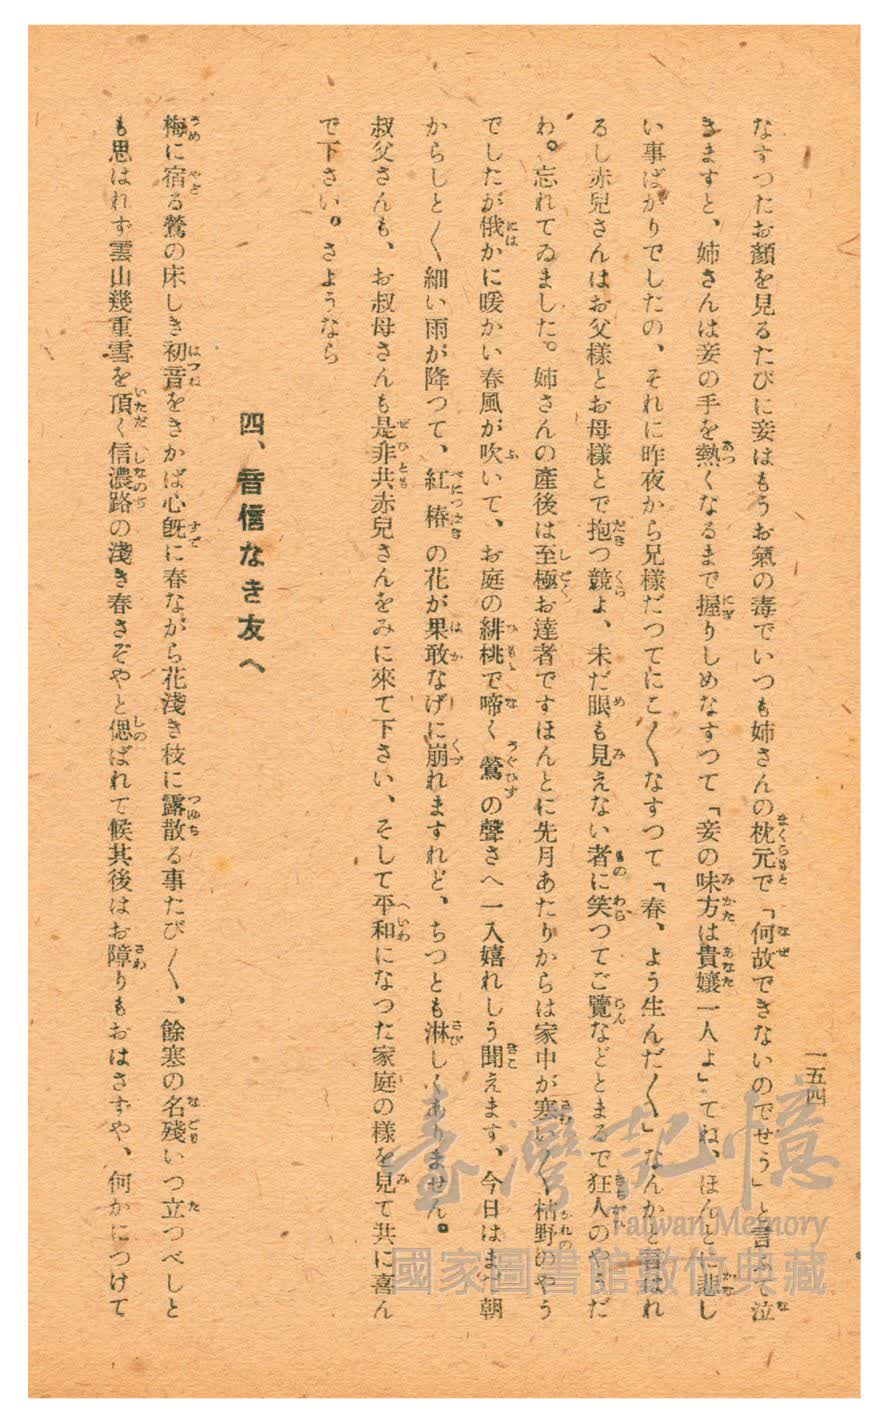 一五四
なすつたお顏を見るたびに妾はもうお氣の毒でいつも姉さんの枕元で「何故できないのでせう」と言ふて泣
きますと、姉さんは妾の手を熱くなるまで握りしめなすつて「妾の味方は貴孃一人よ」てね、ほんとに悲し
い事ばかりでしたの、それに昨夜から兄樣だつてにこ〱なすつて「春、よう生んだ〱」なんかと言はれ
るし赤兒さんはお父樣とお母樣とで抱つ競よ、未だ眼も見えない者に笑つてご覽などとまるで狂人のやうだ
わ。忘れてゐました。姉さんの產後は至極お達者ですほんとに先月あたりからは家中が寒い〱枯野のやう
でしたが俄かに暖かい春風が吹いて、お庭の緋桃で啼く鶯の聲さへ一入嬉れしう聞えます、今日はまだ朝
からしと〱細い雨が降つて、紅椿の花が果敢なげに崩れますれど、ちつとも淋しくありません。
叔父さんも、お叔母さんも是非共赤兒さんをみに來て下さい、そして平和になつた家庭の樣を見て共に喜ん
で下さい。さようなら
四、音信なき友へ
梅に宿る鶯の床しき初音をきかば心旣に春ながら花淺き枝に露散る事たび〱、餘寒の名殘いつ立つべしと
も思はれず雲山幾重雪を頂く信濃路の淺き春さぞやと偲ばれて候其後はお障りもおはさずや、何かにつけて
臺灣記憶
Taiwan Memory
國家圖書館數位典藏